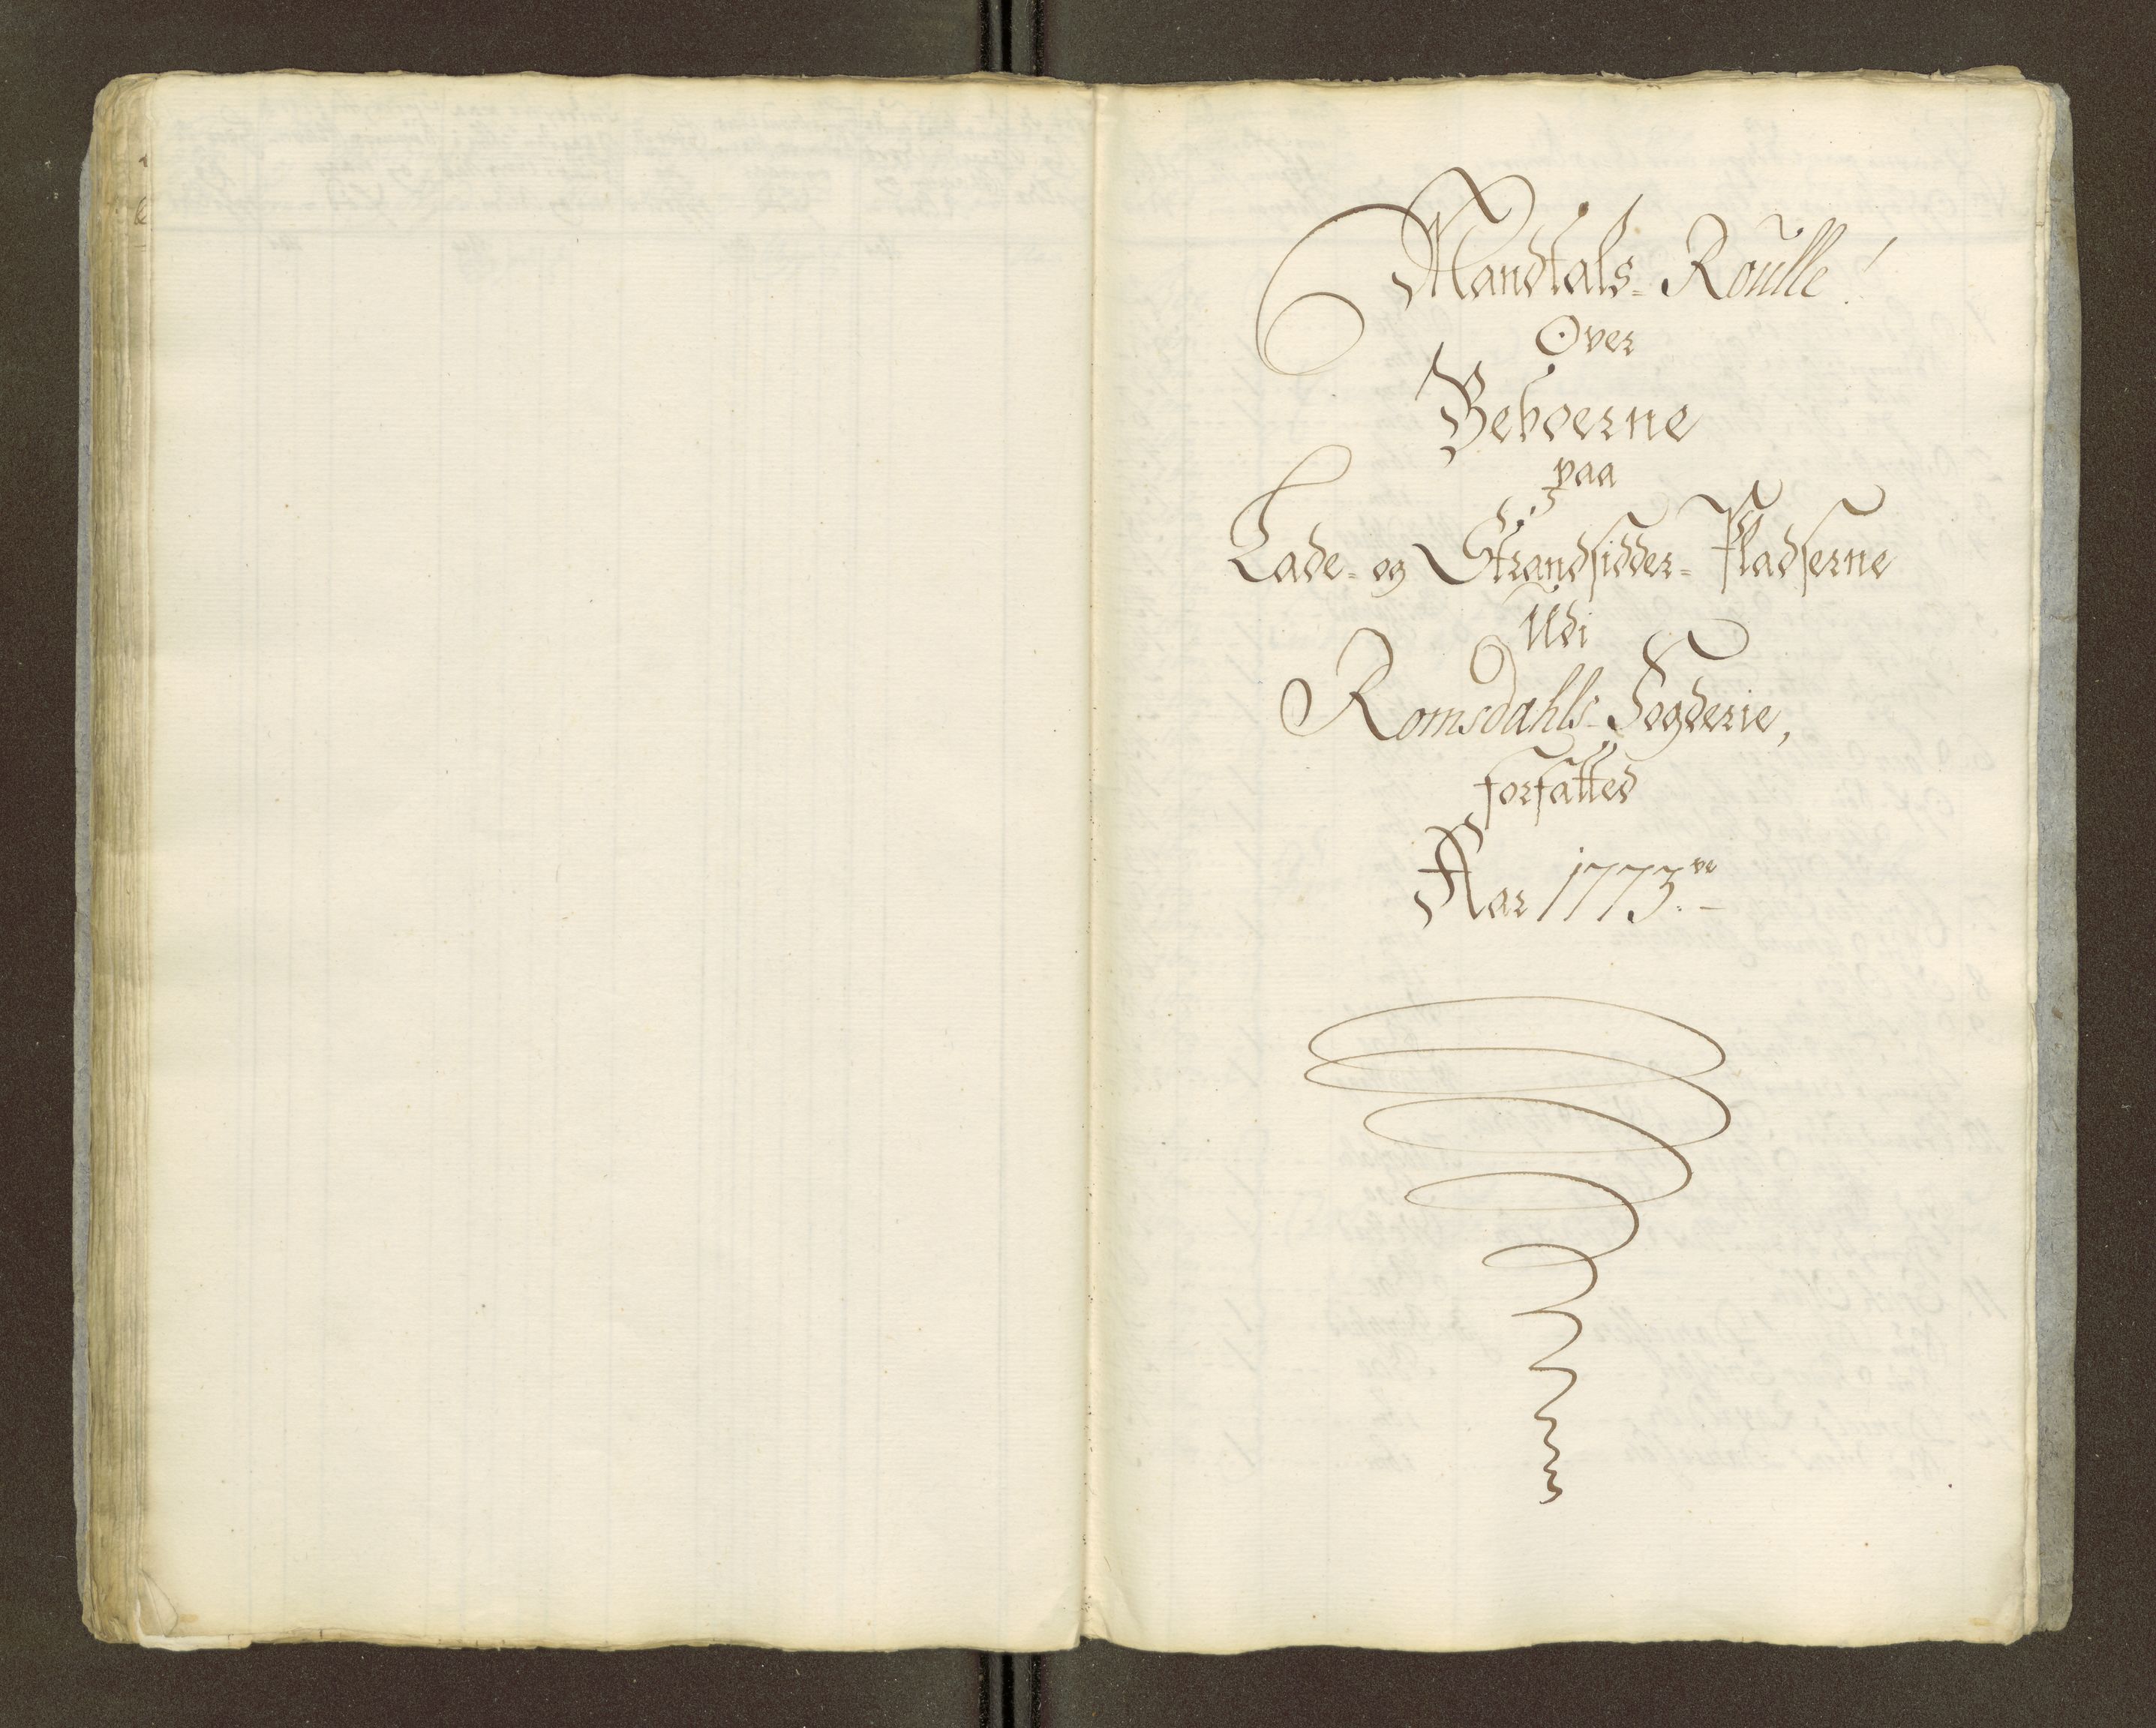 Mandtals-Roulle!
Over
Beboerne
paa
Lade- og Strandsidder-Pladserne
Udi
Romsdahls-Fogderie,
forfatted
Aar 1773ve